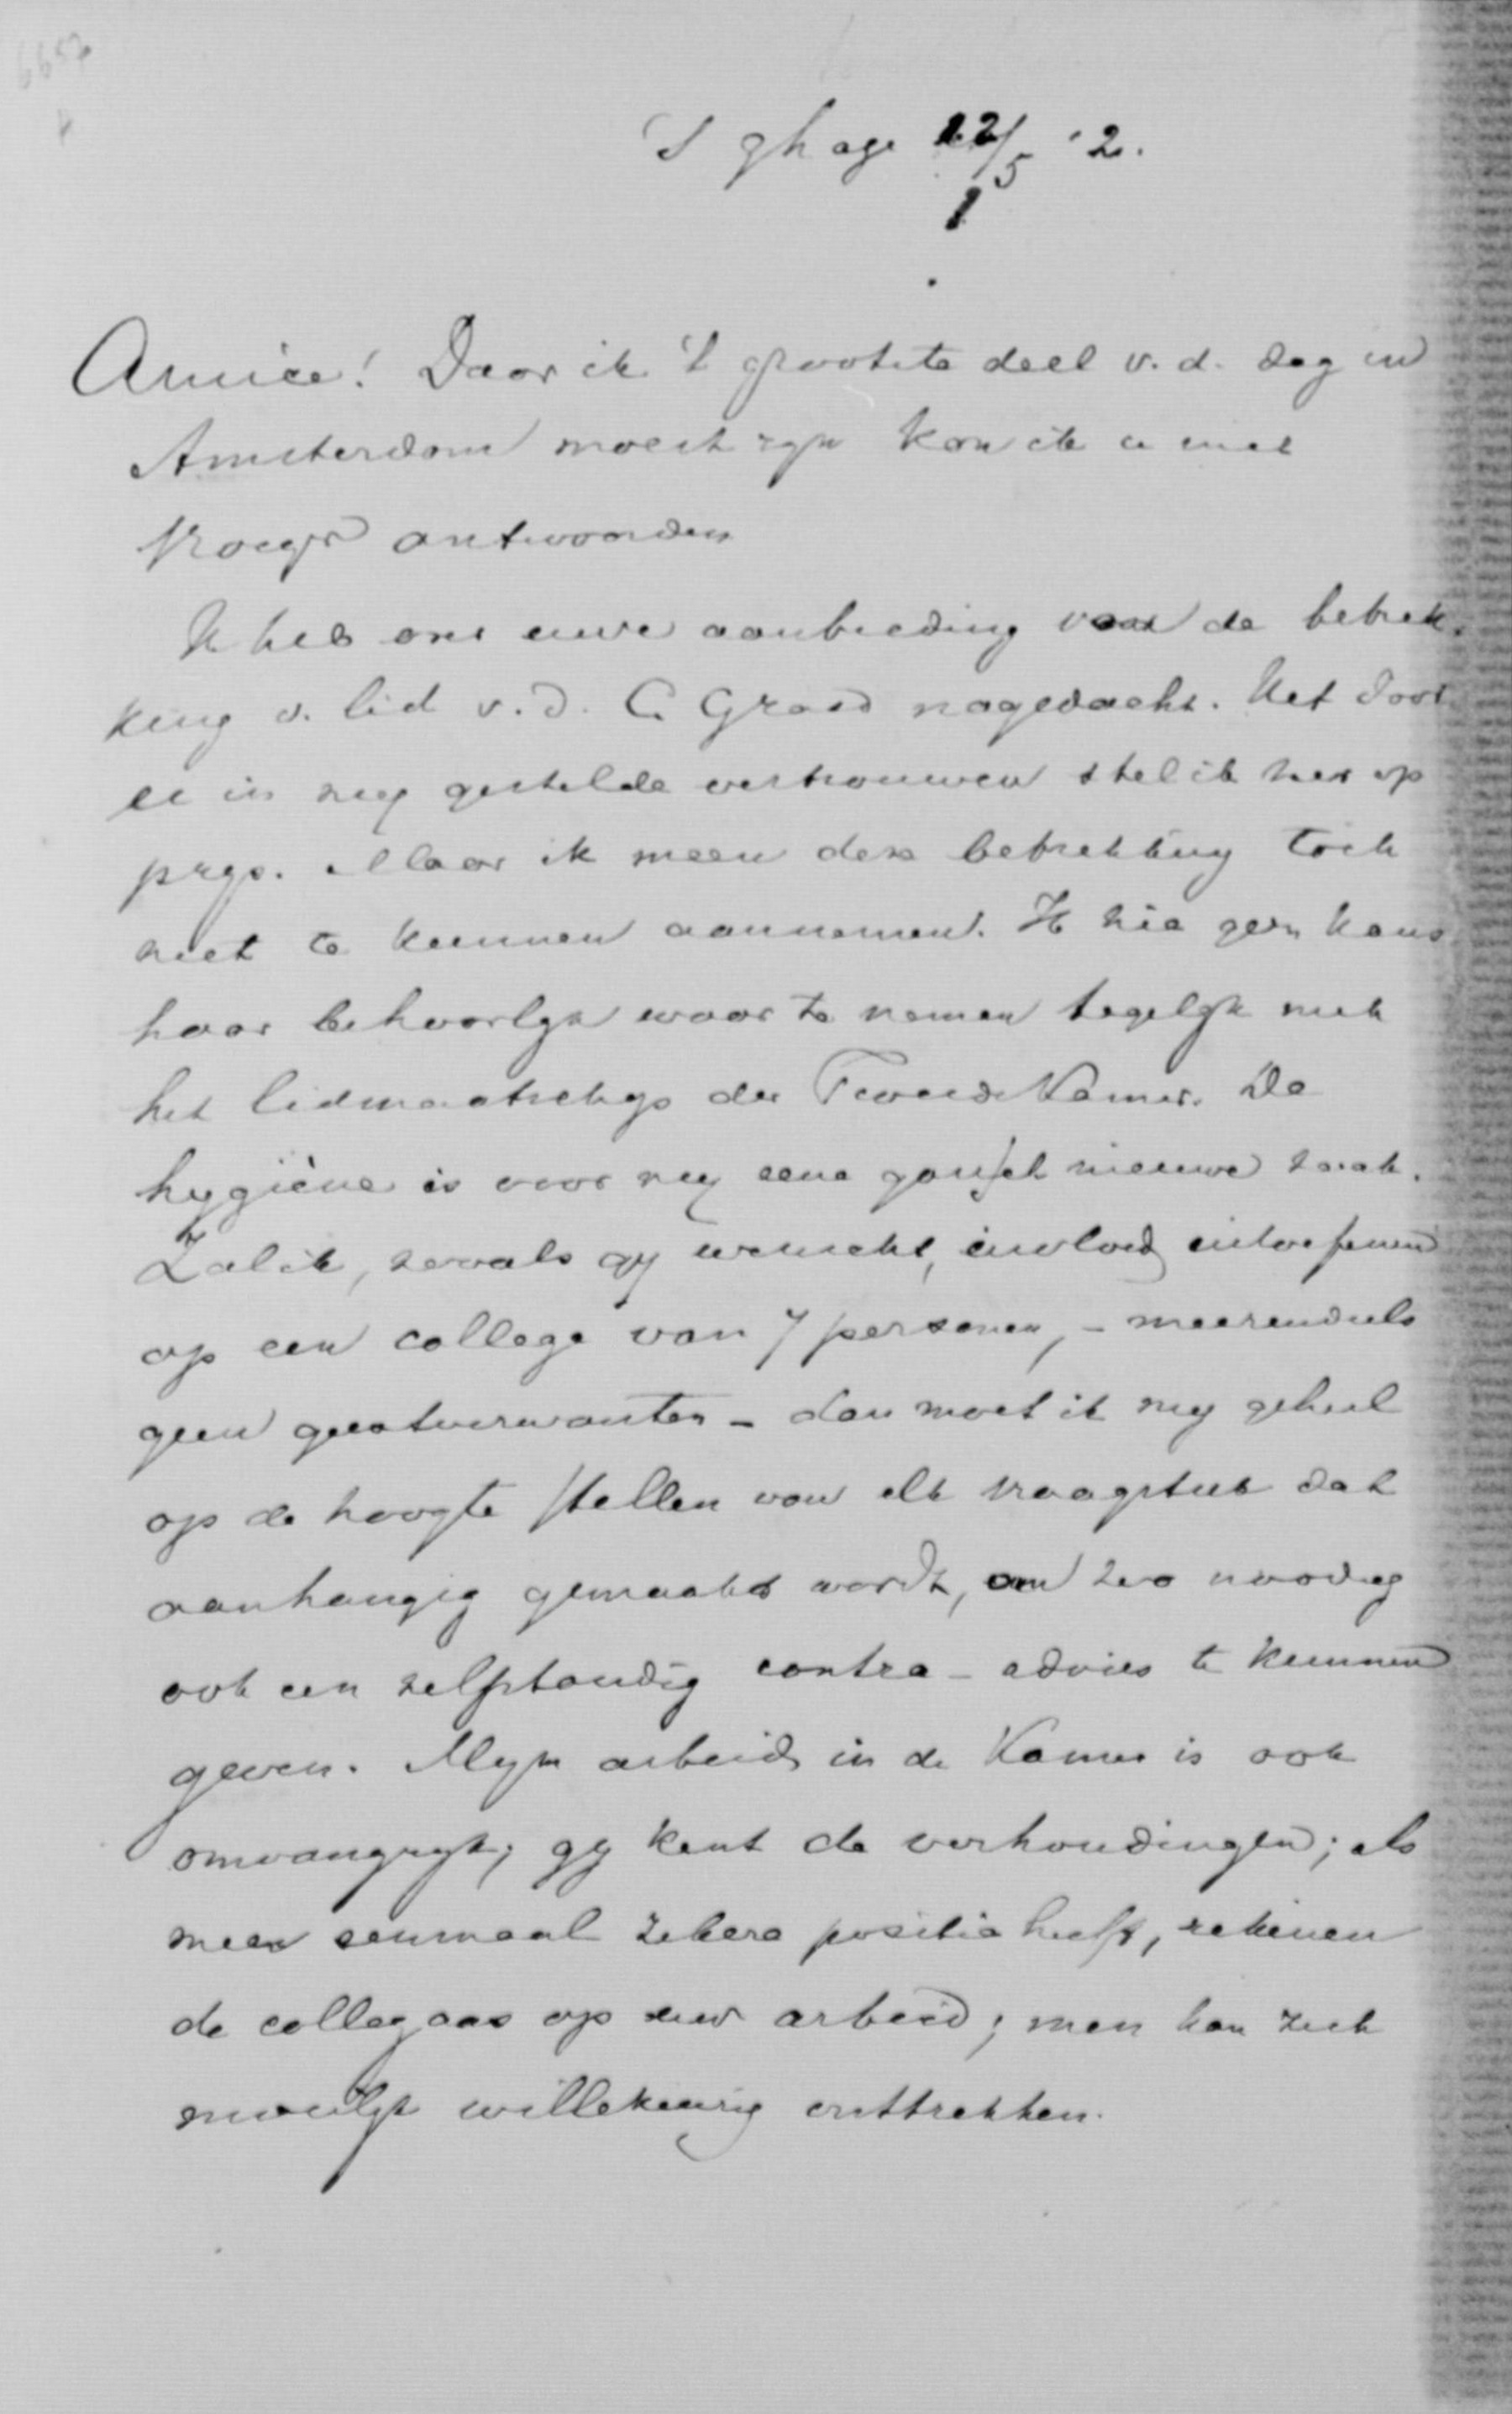 6657
'S Ghage 22/5 '2.
1
Amice! Daar ik 't grootste deel v. d. dag in
Amsterdam moest zijn kon ik u niet
vroeger antwoorden
Ik heb over uwe aanbieding van de betrek-
king v. lid v. d. C. Graad nagedacht. Het door
u in mij gestelde vertrouwen stel ik zeer op
prijs. Maar ik meen deze betrekking toch
niet te kunnen aannemen. Ik zie geen kans
haar behoorlijk waar te nemen tegelijk met
het lidmaatschap der Tweede Kamer. De
hygiène is voor mij eene gansch nieuwe zaak.
Zal ik, zooals gij wenscht, invloed uitoefenen
op een college van 7 personen, – meerendeels
geen geestverwanten – dan moet ik mij geheel
op de hoogte stellen van elk vraagstuk dat
aanhangig gemaakt wordt, om zoo noodig
ook een zelfstandig contra-advies te kunnen
geven. Mijn arbeid in de Kamer is ook
omvangrijk; gij kent de verhoudingen; als
men eenmaal zekere positie heeft, rekenen
de collegaas op uw arbeid; men kan zich
moeilijk willekeurig onttrekken.